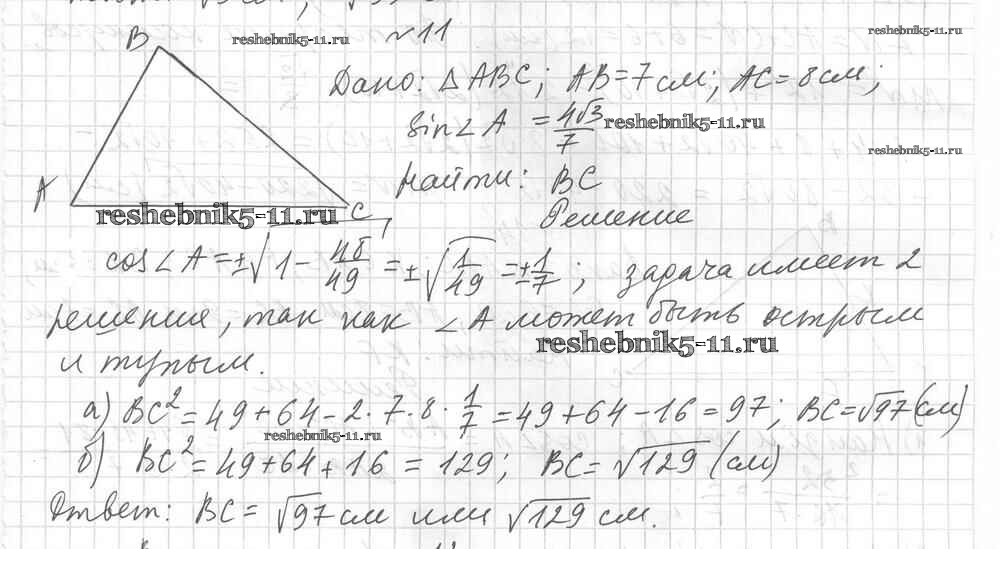 №11
B
reshebnik5-11.ru
reshebnik5-11.ru
Дано: △ABC; AB=7 см; AC=8см;
sin∠A = 4√3/7
reshebnik5-11.ru
reshebnik5-11.ru
Найти: BC
A
reshebnik5-11.ru
C
Решение
cos∠A = ±√(1 - 48/49) = ±√(1/49) = ±1/7; задача имеет 2
решения, так как ∠A может быть острым
reshebnik5-11.ru
и тупым.
а) BC² = 49+64-2·7·8·1/7 = 49+64-16=97; BC=√97 (см)
reshebnik5-11.ru
б) BC² = 49+64+16 = 129; BC = √129 (см)
Ответ: BC = √97 см или √129 см.